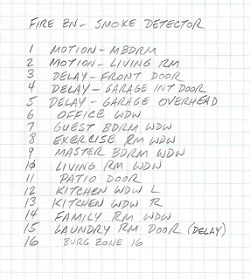 FIRE EN- SMOKE DETECTOR
1 MOTION - MBDRM
2 MOTION - LIVING RM
3 DELAY - FRONT DOOR
4 DELAY - GARAGE INT DOOR
5 DELAY - GARAGE OVERHEAD
6 OFFICE WDW
7 GUEST BDRM WDW
8 EXERCISE RM WDW
9 MASTER BDRM WDW
10 LIVING RM WDW
11 PATIO DOOR
12 KITCHEN WDW L
13 KITCHEN WDW R
14 FAMILY RM WDW
15 LAUNDRY RM DOOR (DELAY)
16 BURG ZONE 16